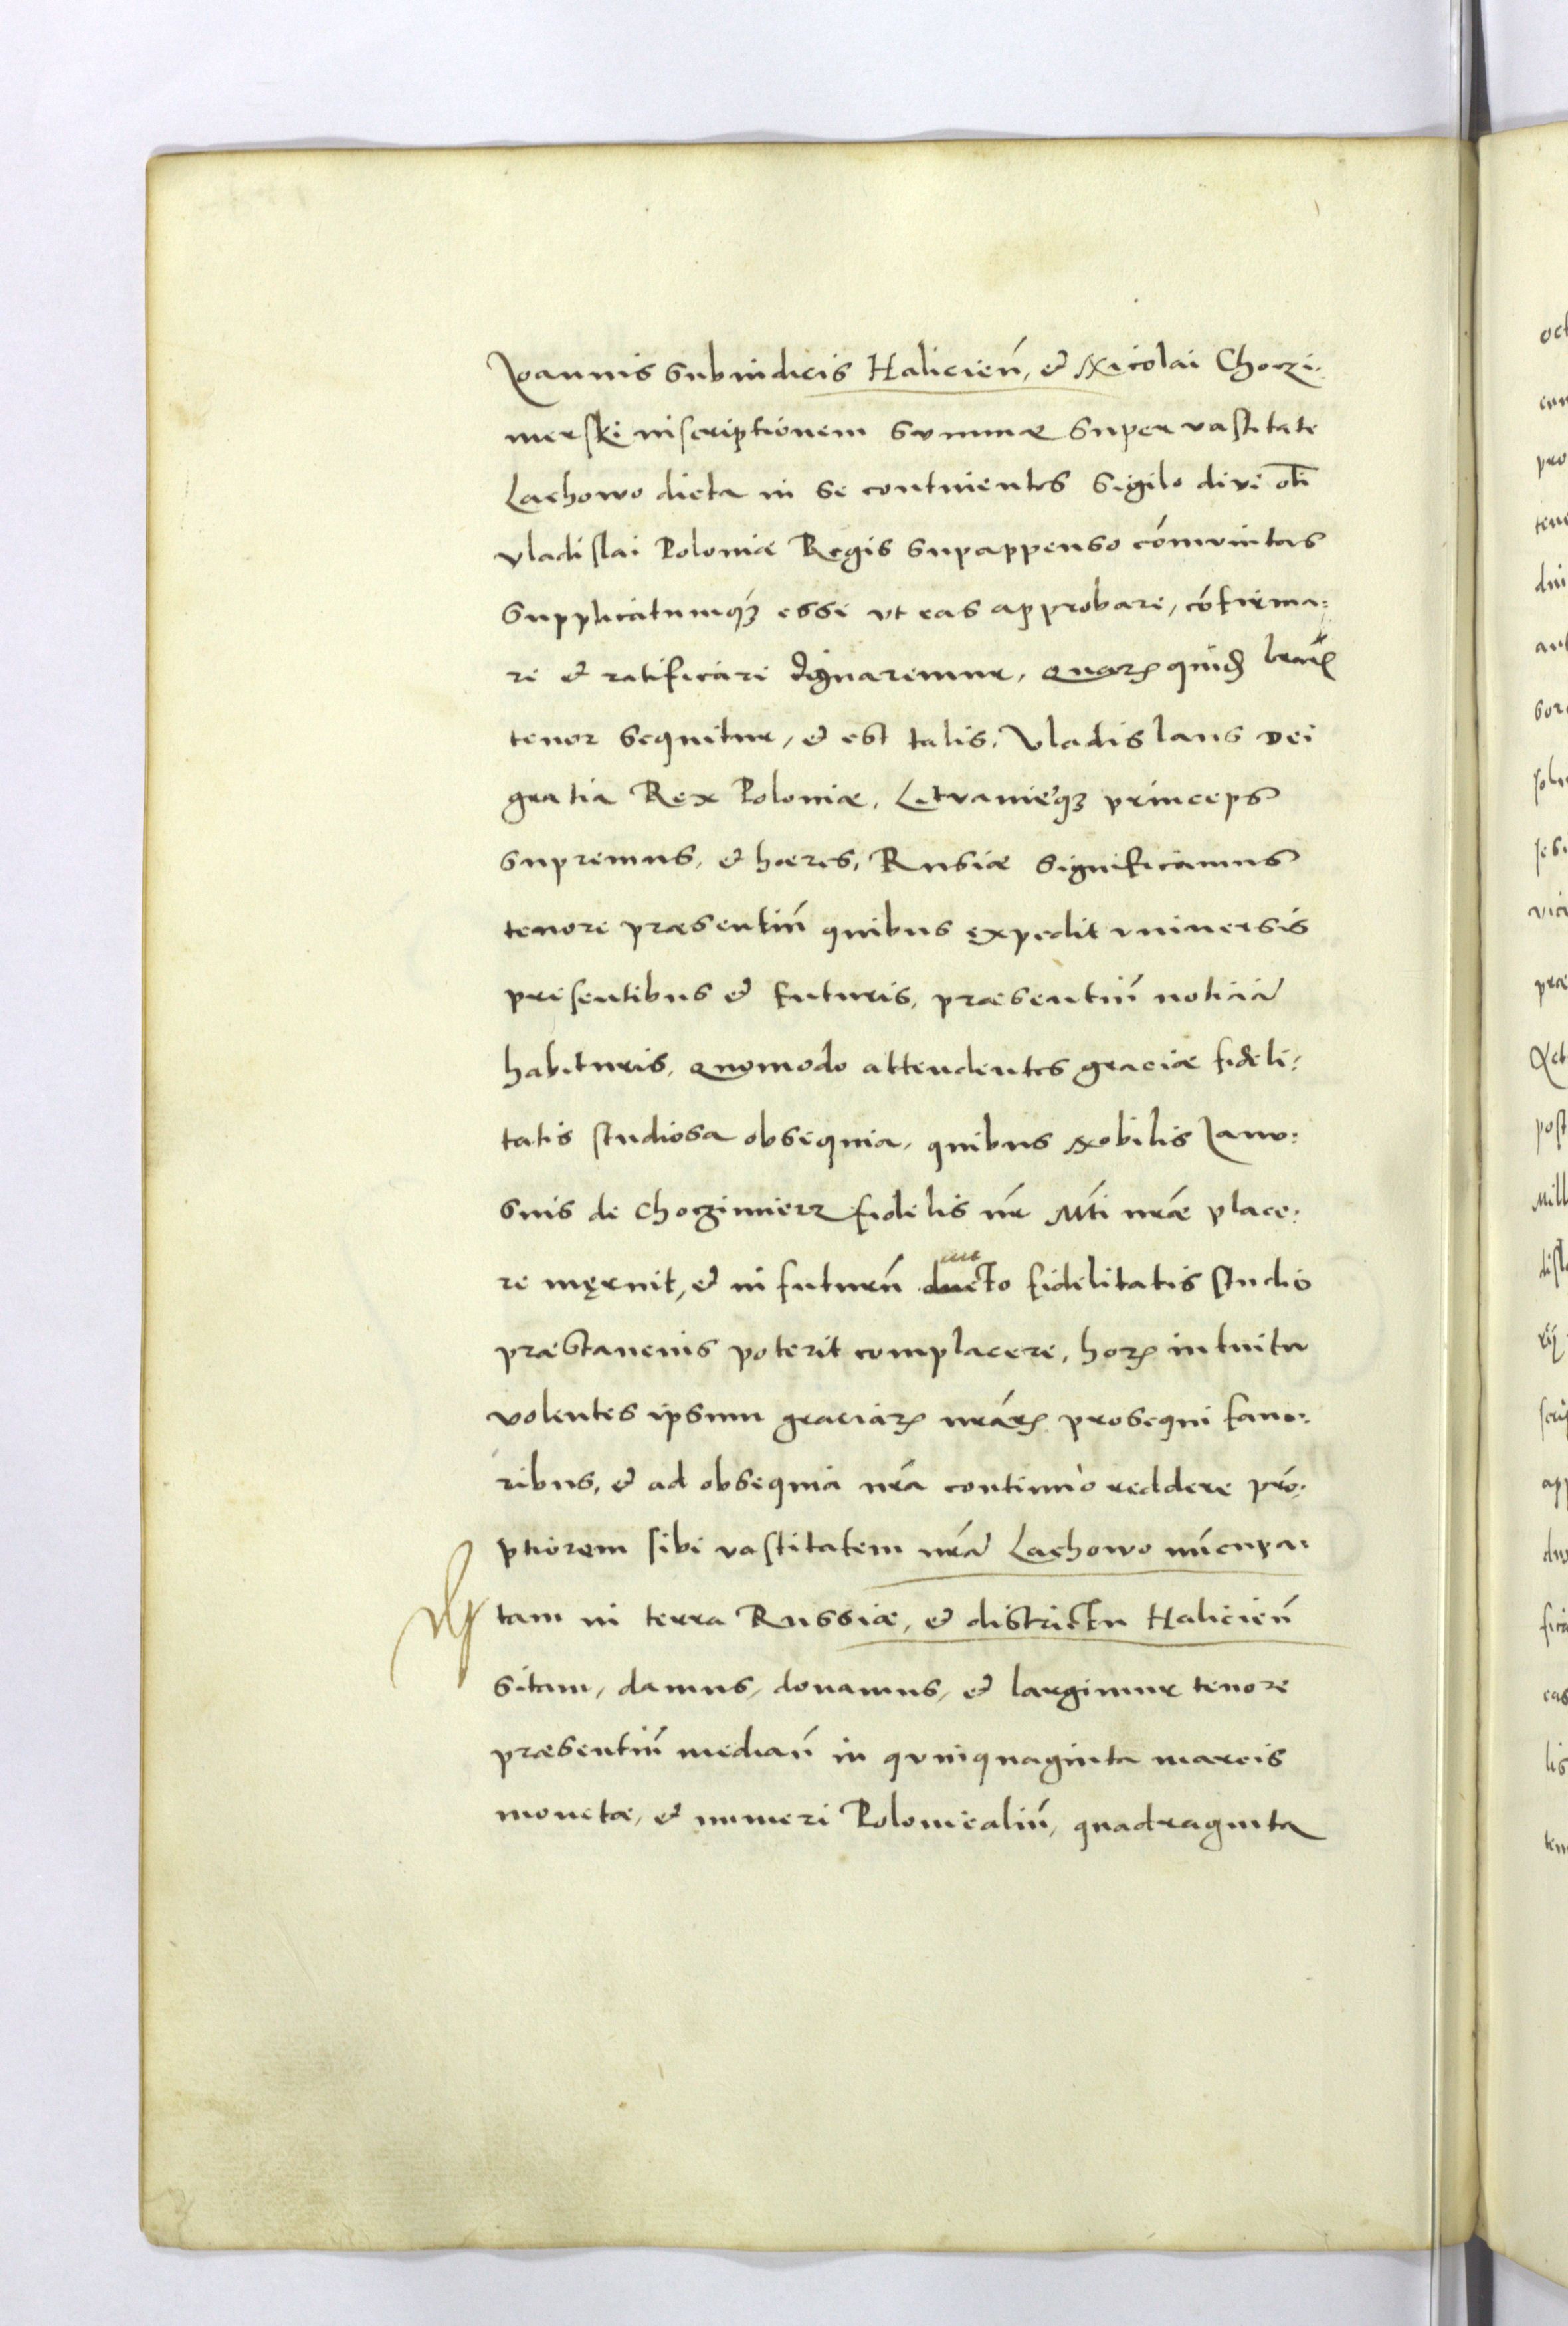 Joannis Subiudicis Halicieñ, et Nicolai Choczi⸗
merski inscriptionem summæ super vastitate
Lachowo dicta in se continentes sigilo divi oli͞
Vladislai Poloniæ Regis supappenso cómunitas
supplicatumqȝ esse vt eas approbare, cófirma⸗
re et ratificare dignaremur, quarꝝ quid lrarꝝ
tenor sequitur, et est talis. Vladislaus Dei
gratia Rex Poloniæ, Litvanieqȝ princeps
supremus, et hæres, Rusiæ significamus
tenore præsentiũ quibus expedit vniuersis
presentibus et futuris, præsentiũ noticiã
habituris, Quomodo attendentes graciæ fideli⸗
tatis studiosa obsequia, quibus Nobilis Janu⸗
suis de Choczimierz fidelis nr̃ Mti nræ̃ place⸗
re męruit, et in futurũ aucto fidelitatis studio
præstancius poterit complacere, horꝝ intuitu
volentes ipsum graciarꝝ nrãrꝝ prosequi fauo⸗
ribus, et ad obsequia nrã continuò reddere pró⸗
ptiorem sibi vastitatem nrã Lachowo nũcupa⸗
tam in terra Russiæ, et districtu Halicieñ
sitam, damus, donamus, et largimur tenore
præsentiũ mediañ in quinquaginta marcis
monetæ, et numeri Polonicaliũ, quadraginta